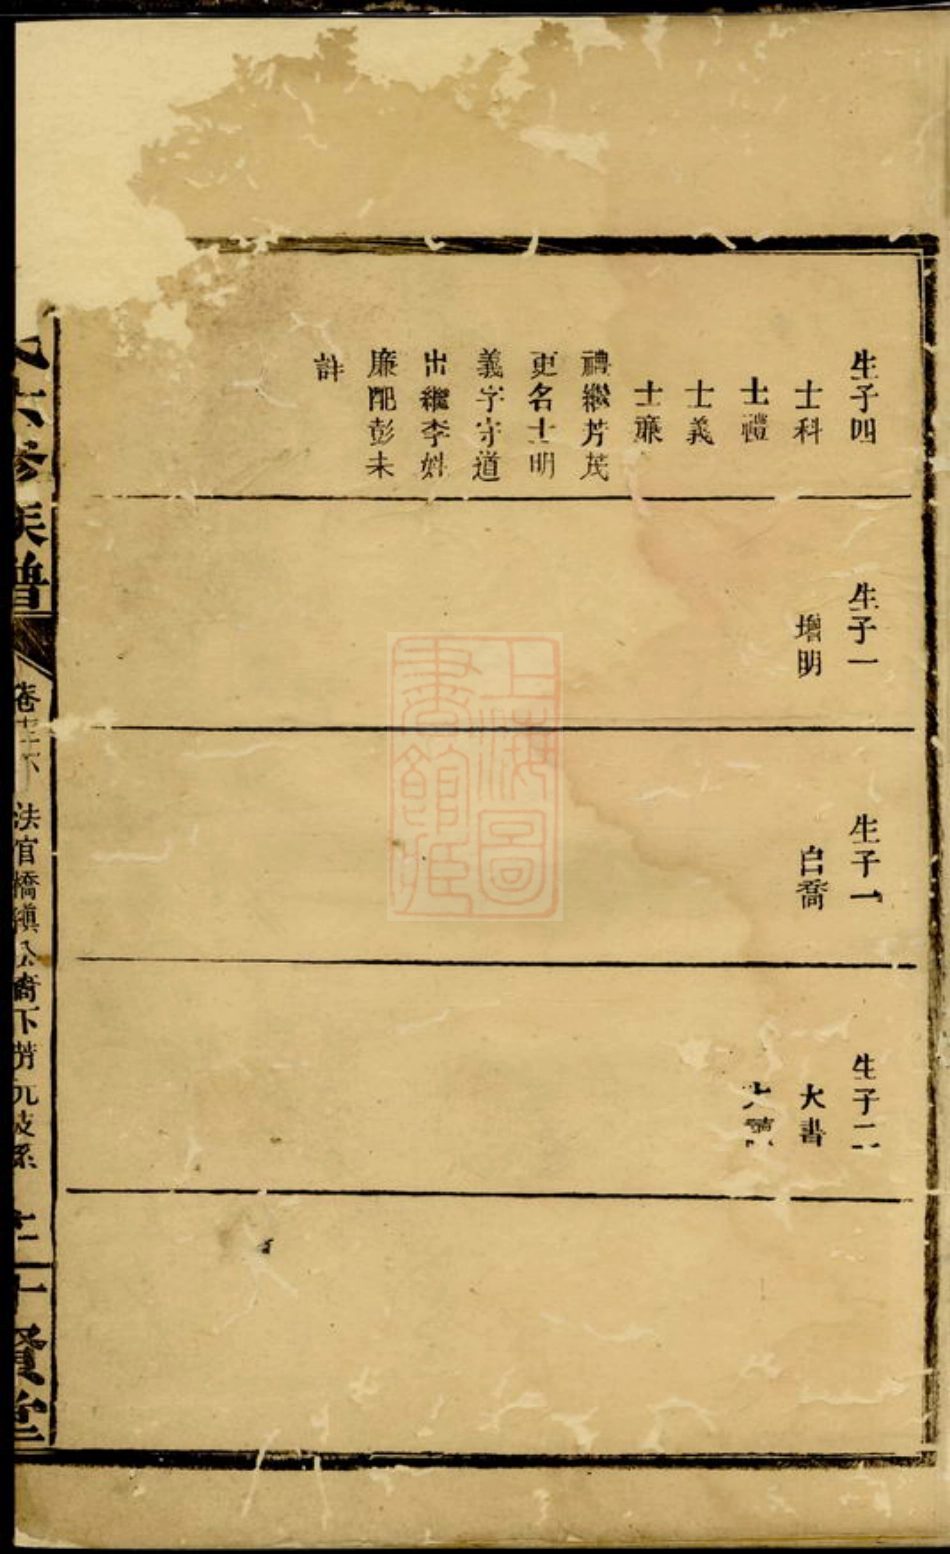 生子四
士科
士禮
士義
士廉
禮繼芳茂
更名士明
義字守道
出繼李姓
廉配彭未
詳
生子一
增明
生子一
白喬
生子二
大書
大
六修族譜
卷
法官橋鎮公裔下芳沅技系
十賢堂
上海圖書館藏